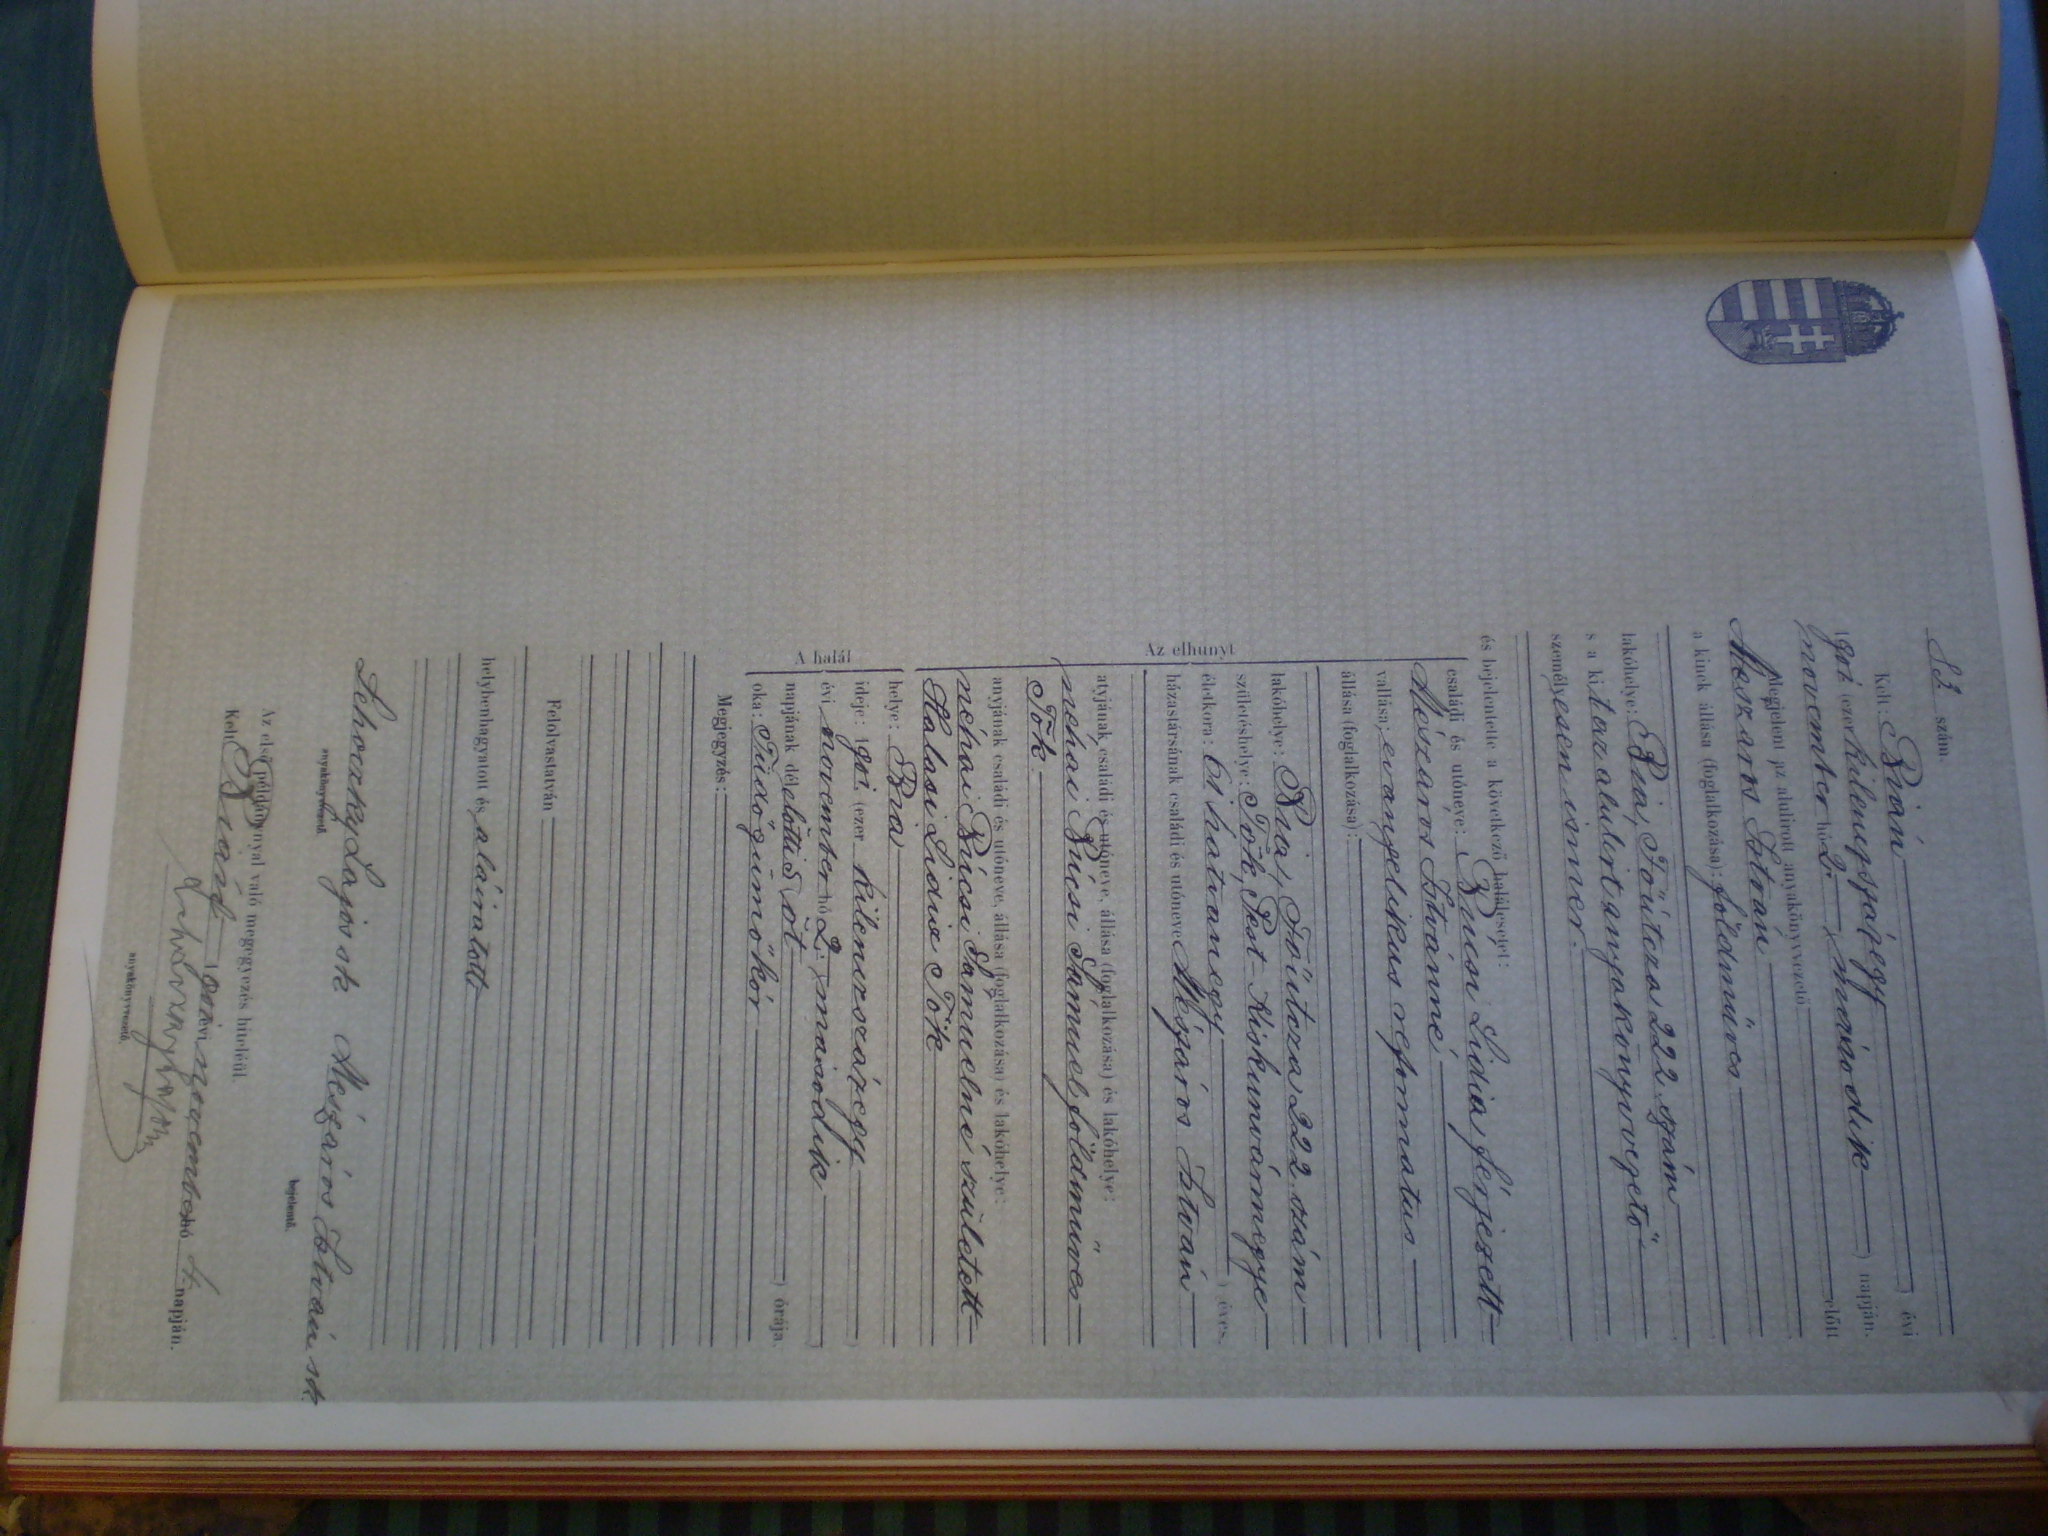 83. szám.
Kelt: Bián évi
1901 (ezerkilenczszázegy
november hó 2. (második) napján.
Megjelent az alulirott anyakönyvvezető előtt
Mészáros István
a kinek állása (foglalkozása): földműves
lakóhelye: Bia, Főutcza 222. szám
s a kit az alulirt anyakönyvvezető
személyesen ismer.
és bejelentette a következő halálesetet:
Az elhunyt
családi és utóneve: Búcsi Lidia, férjezett
Mészáros Istvánné
vallása: evangelikus reformatus
állása (foglalkozása):
lakóhelye: Bia, Főutcza 222. szám
születéshelye: Tök, Pest-Kiskunvármegye
életkora: 61 hatvanegy éves.
házastársának családi és utóneve Mészáros István
atyjának családi és utóneve, állása (foglalkozása) és lakóhelye:
néhai Búcsi Sámuel földműves
Tök
anyjának családi és utóneve, állása (foglalkozása) és lakóhelye:
néhai Búcsi Sámuelné született
Halasi Lidia Tök
A halál
helye: Bia
ideje: 1901 (ezer kilenczszázegy )
évi november hó 2. (második )
napjának délelőtti 5 (öt ) órája.
oka: Tüdőgümőkór
Megjegyzés:
Felolvastatván
helybenhagyatott és aláiratott
Lehoczky Lajos sk Mészáros István sk
anyakönyvvezető. bejelentő.
Az első példánynyal való megegyezés hiteléül
Kelt Bián 1901 évi november hó 4. napján.
anyakönyvvezető.